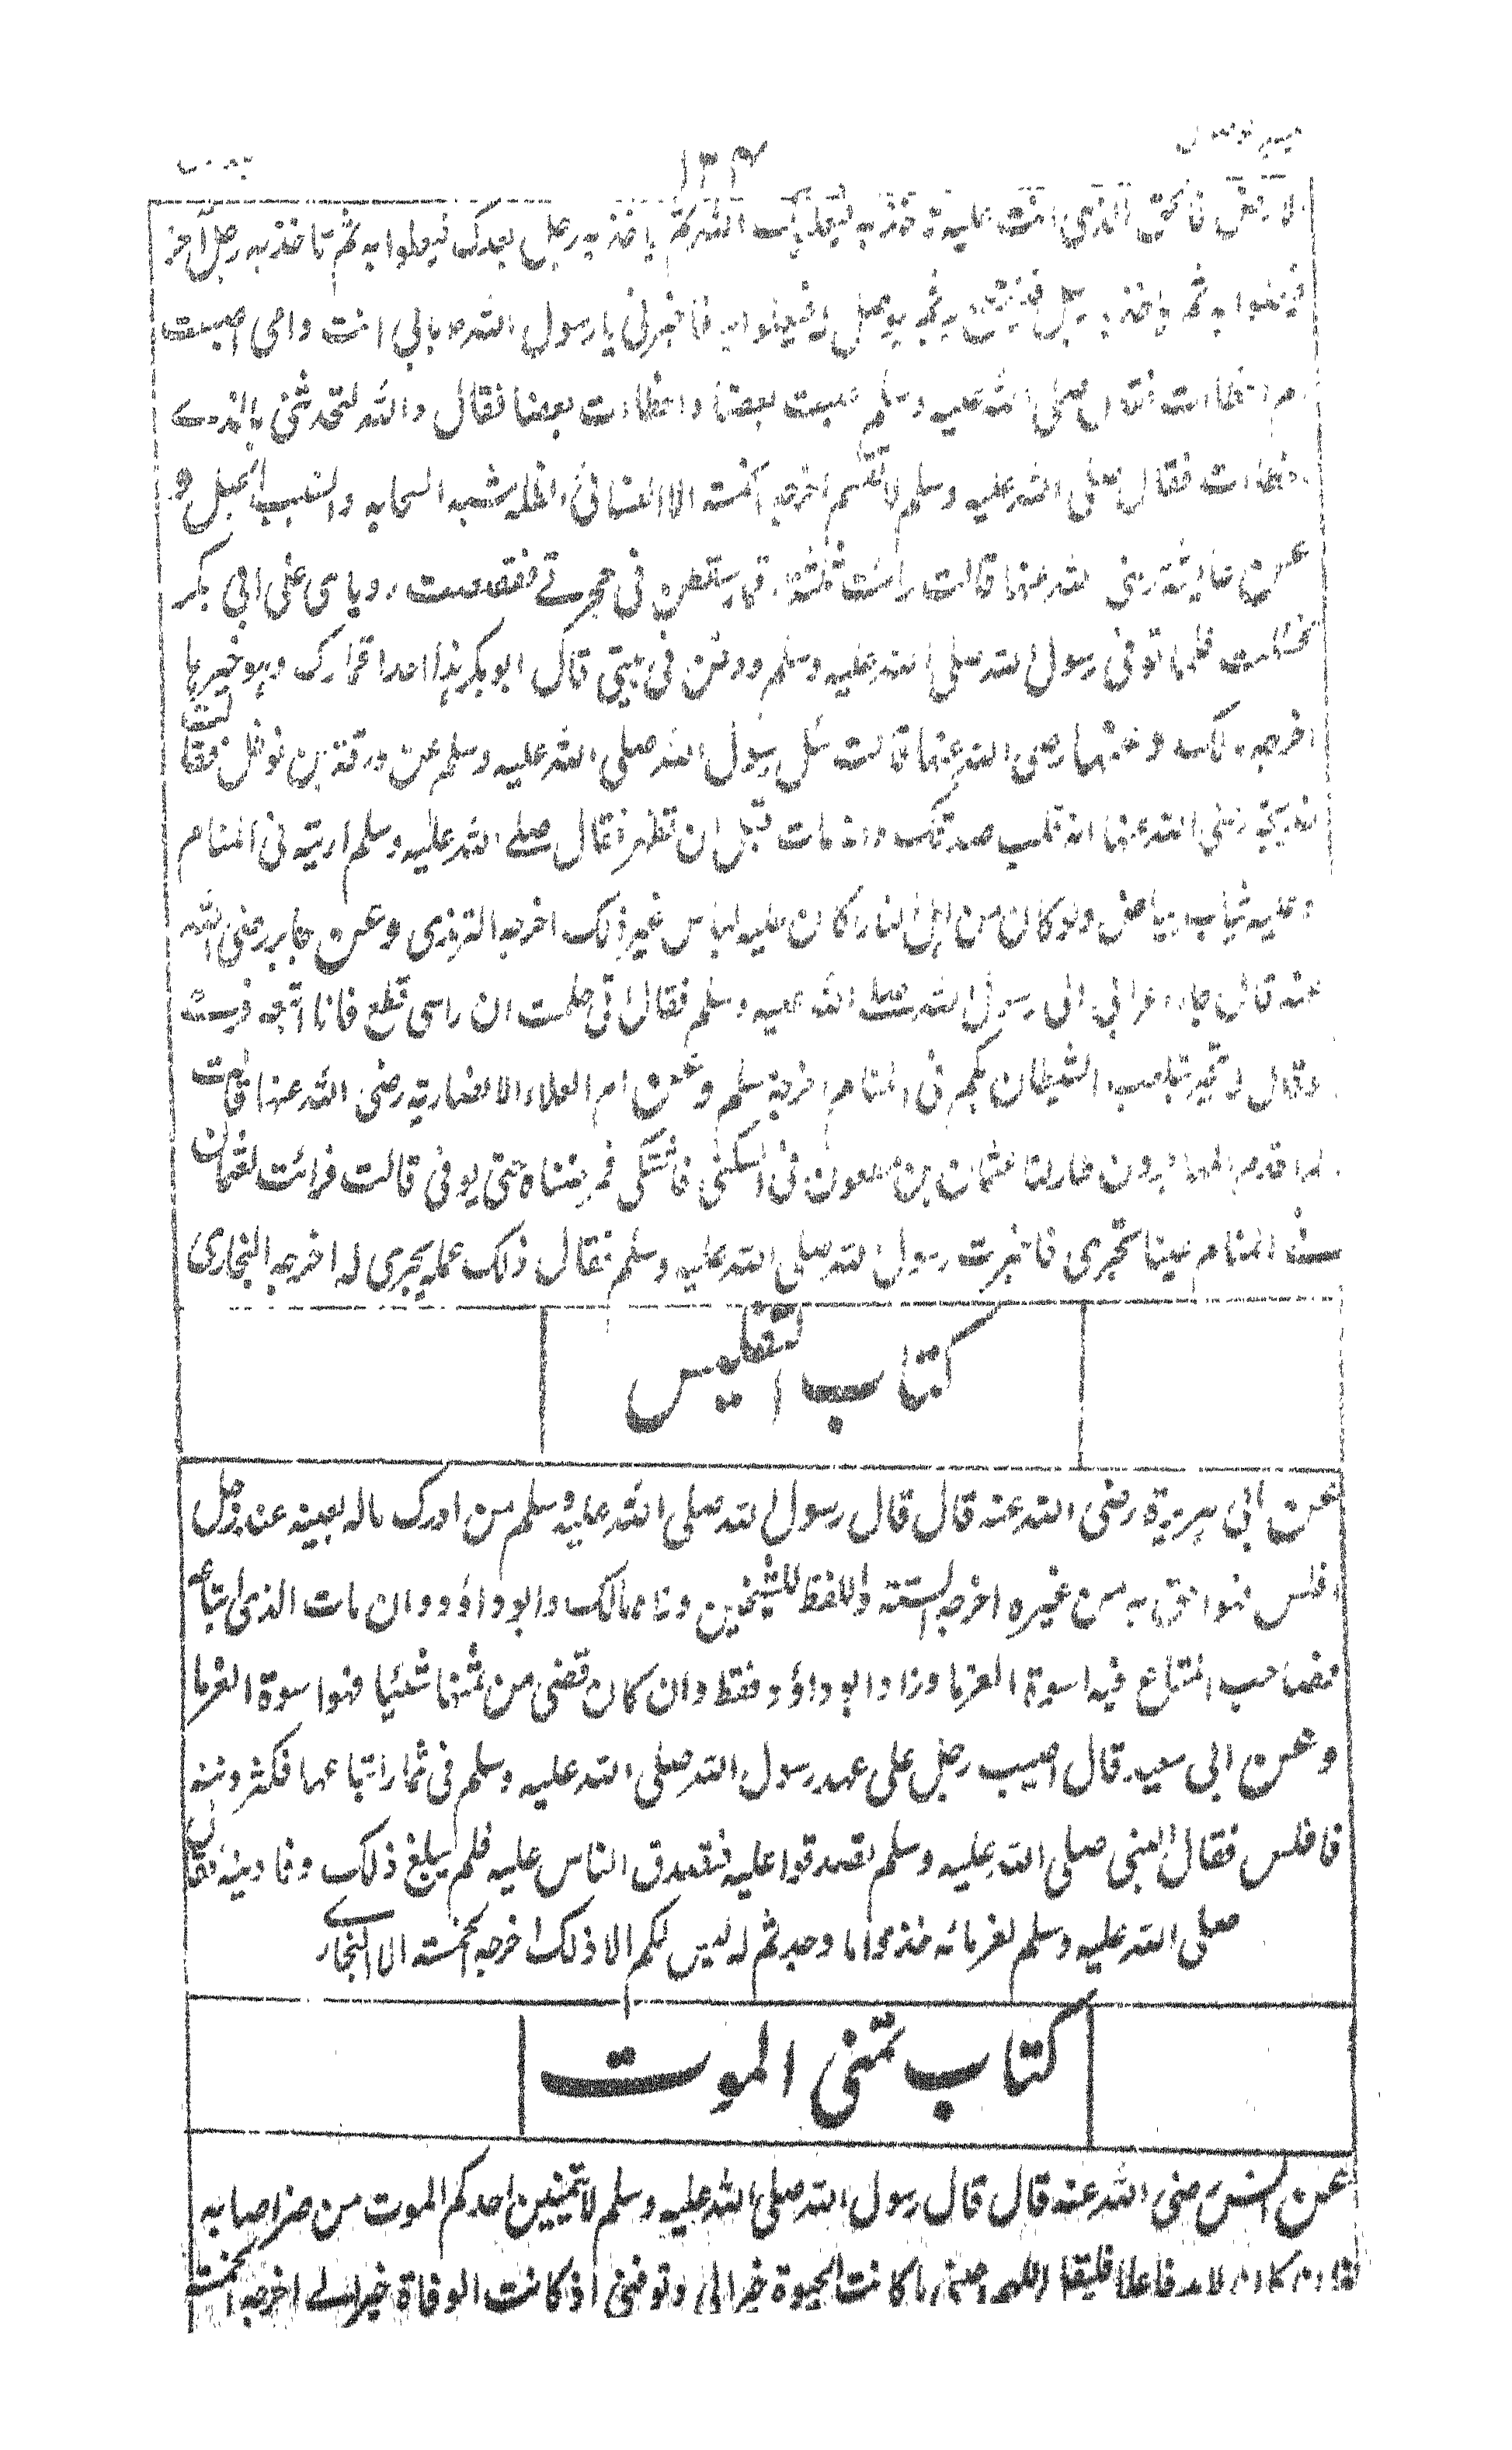 ١٣٤
الارض فالحق الذي انت عليه تاخذ به فيعليك الله ثم ياخذ به رجل بعدك فيعلوا به ثم ياخذ به رجل آخر
فيعلوا به ثم ياخذ به رجل فينقطع به ثم يوصل له فيعلوا به فاخبرني يا رسول الله بابي انت وامي اصبت
ام اخطات فقال صلى الله عليه وسلم اصبت بعضا واخطات بعضا فقال والله لتحدثني بالذي
اخطات فقال صلى الله عليه وسلم لا تقسم اخرجه الخمسة الا النسائي الظلة شبه السحابه والسبب الحبل و
عن عايشة رضي الله عنها قالت رائت ثلثة اقمار سقطن في حجرتي فقصصت روياي على ابي بكر
فسكت فلما توفي رسول الله صلى الله عليه وسلم ودفن في بيتي قال ابو بكر هذا احد اقمارك وهو خيرها
اخرجه مالك وعنها رضى الله عنها قالت سئل رسول الله صلى الله عليه وسلم عن ورقة بن نوفل فقالت
خديجة رضى الله عنها انه قد صدقك وانه مات قبل ان تظهر فقال صلے الله عليه وسلم اريته في المنام
وعليه ثياب بياض ولو كان من اهل النار كان عليه لباس غير ذلك اخرجه الترمذي وعن جابر رضى الله
عنه قال جاء اعرابي الى رسول الله صلے الله عليه وسلم فقال اني حلمت ان راسي قطع فانا اتبعه فزجره
وقال لا تخبر بتلعب الشيطان بكم في المنام اخرجه مسلم وعن ام العلاء الانصارية رضى الله عنها قالت
لما قدم المهاجرون طار لنا عثمان بن مظعون في السكنى فاشتكى فمرضناه حتى توفي قالت فرائت لعثمان
في المنام عينا تجري فاخبرت رسول الله صلى الله عليه وسلم فقال ذلك عمله يجري له اخرجه البخاري
كتاب التفليس
عن ابي هريرة رضى الله عنه قال قال رسول الله صلى الله عليه وسلم من ادرك ماله بعينه عند رجل
افلس فهو احق به من غيره اخرجه الستة واللفظ للشيخين وزاد مالك وابو داؤد وان مات الذي ابتاعه
فصاحب المتاع فيه اسوة الغرما وزاد ابو داؤد فقط وان كان قضى من ثمنها شئيا فهو اسوة الغرما
وعن ابي سعيد قال اصيب رجل على عهد رسول الله صلى الله عليه وسلم في ثمار ابتاعها فكثر دينه
فافلس فقال النبي صلى الله عليه وسلم تصدقوا عليه فتصدق الناس عليه فلم يبلغ ذلك وفا دينه فقال
صلى الله عليه وسلم لغرمائه خذوا ما وجدتم له ليس لكم الا ذلك اخرجه الخمسة الا البخاري
كتاب تمنى الموت
عن انس رضى الله عنه قال قال رسول الله صلى الله عليه وسلم لا يتمنين احدكم الموت من ضر اصابه
فان كان لابد فاعلا فليقل اللهم احيني ما كانت الحيوة خيرا لي وتوفني اذ كانت الوفاة خيرا لي اخرجه الخمسة